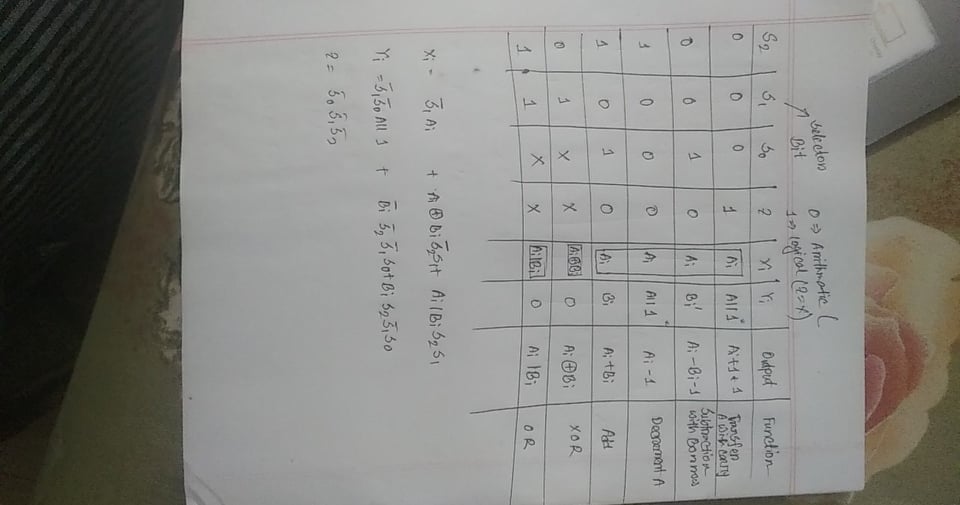 Selection 0 ⇒ Arithmatic (
Bit 1 ⇒ logical (z = x)
S2 S1 S0 z Xi Yi Output Function
0 0 0 1 Ai All 1 Ai+1+1 Transfer A with carry
0 0 1 0 Ai Bi' Ai-Bi-1 Subtraction with Borrow
1 0 0 0 Ai All 1 Ai-1 Decrement A
1 0 1 0 Ai Bi Ai+Bi Add
0 1 X X Ai⊕Bi 0 Ai⊕Bi XOR
1 1 X X Ai|Bi 0 Ai|Bi OR
Xi = S̅1 Ai + Ai⊕Bi S̅2S1+ Ai|Bi S2S1
Yi = S̅1S̅0 All 1 + B̅i S̅2 S̅1 S0+Bi S2S̅1S0
z = S̅0 S̅1 S̅2